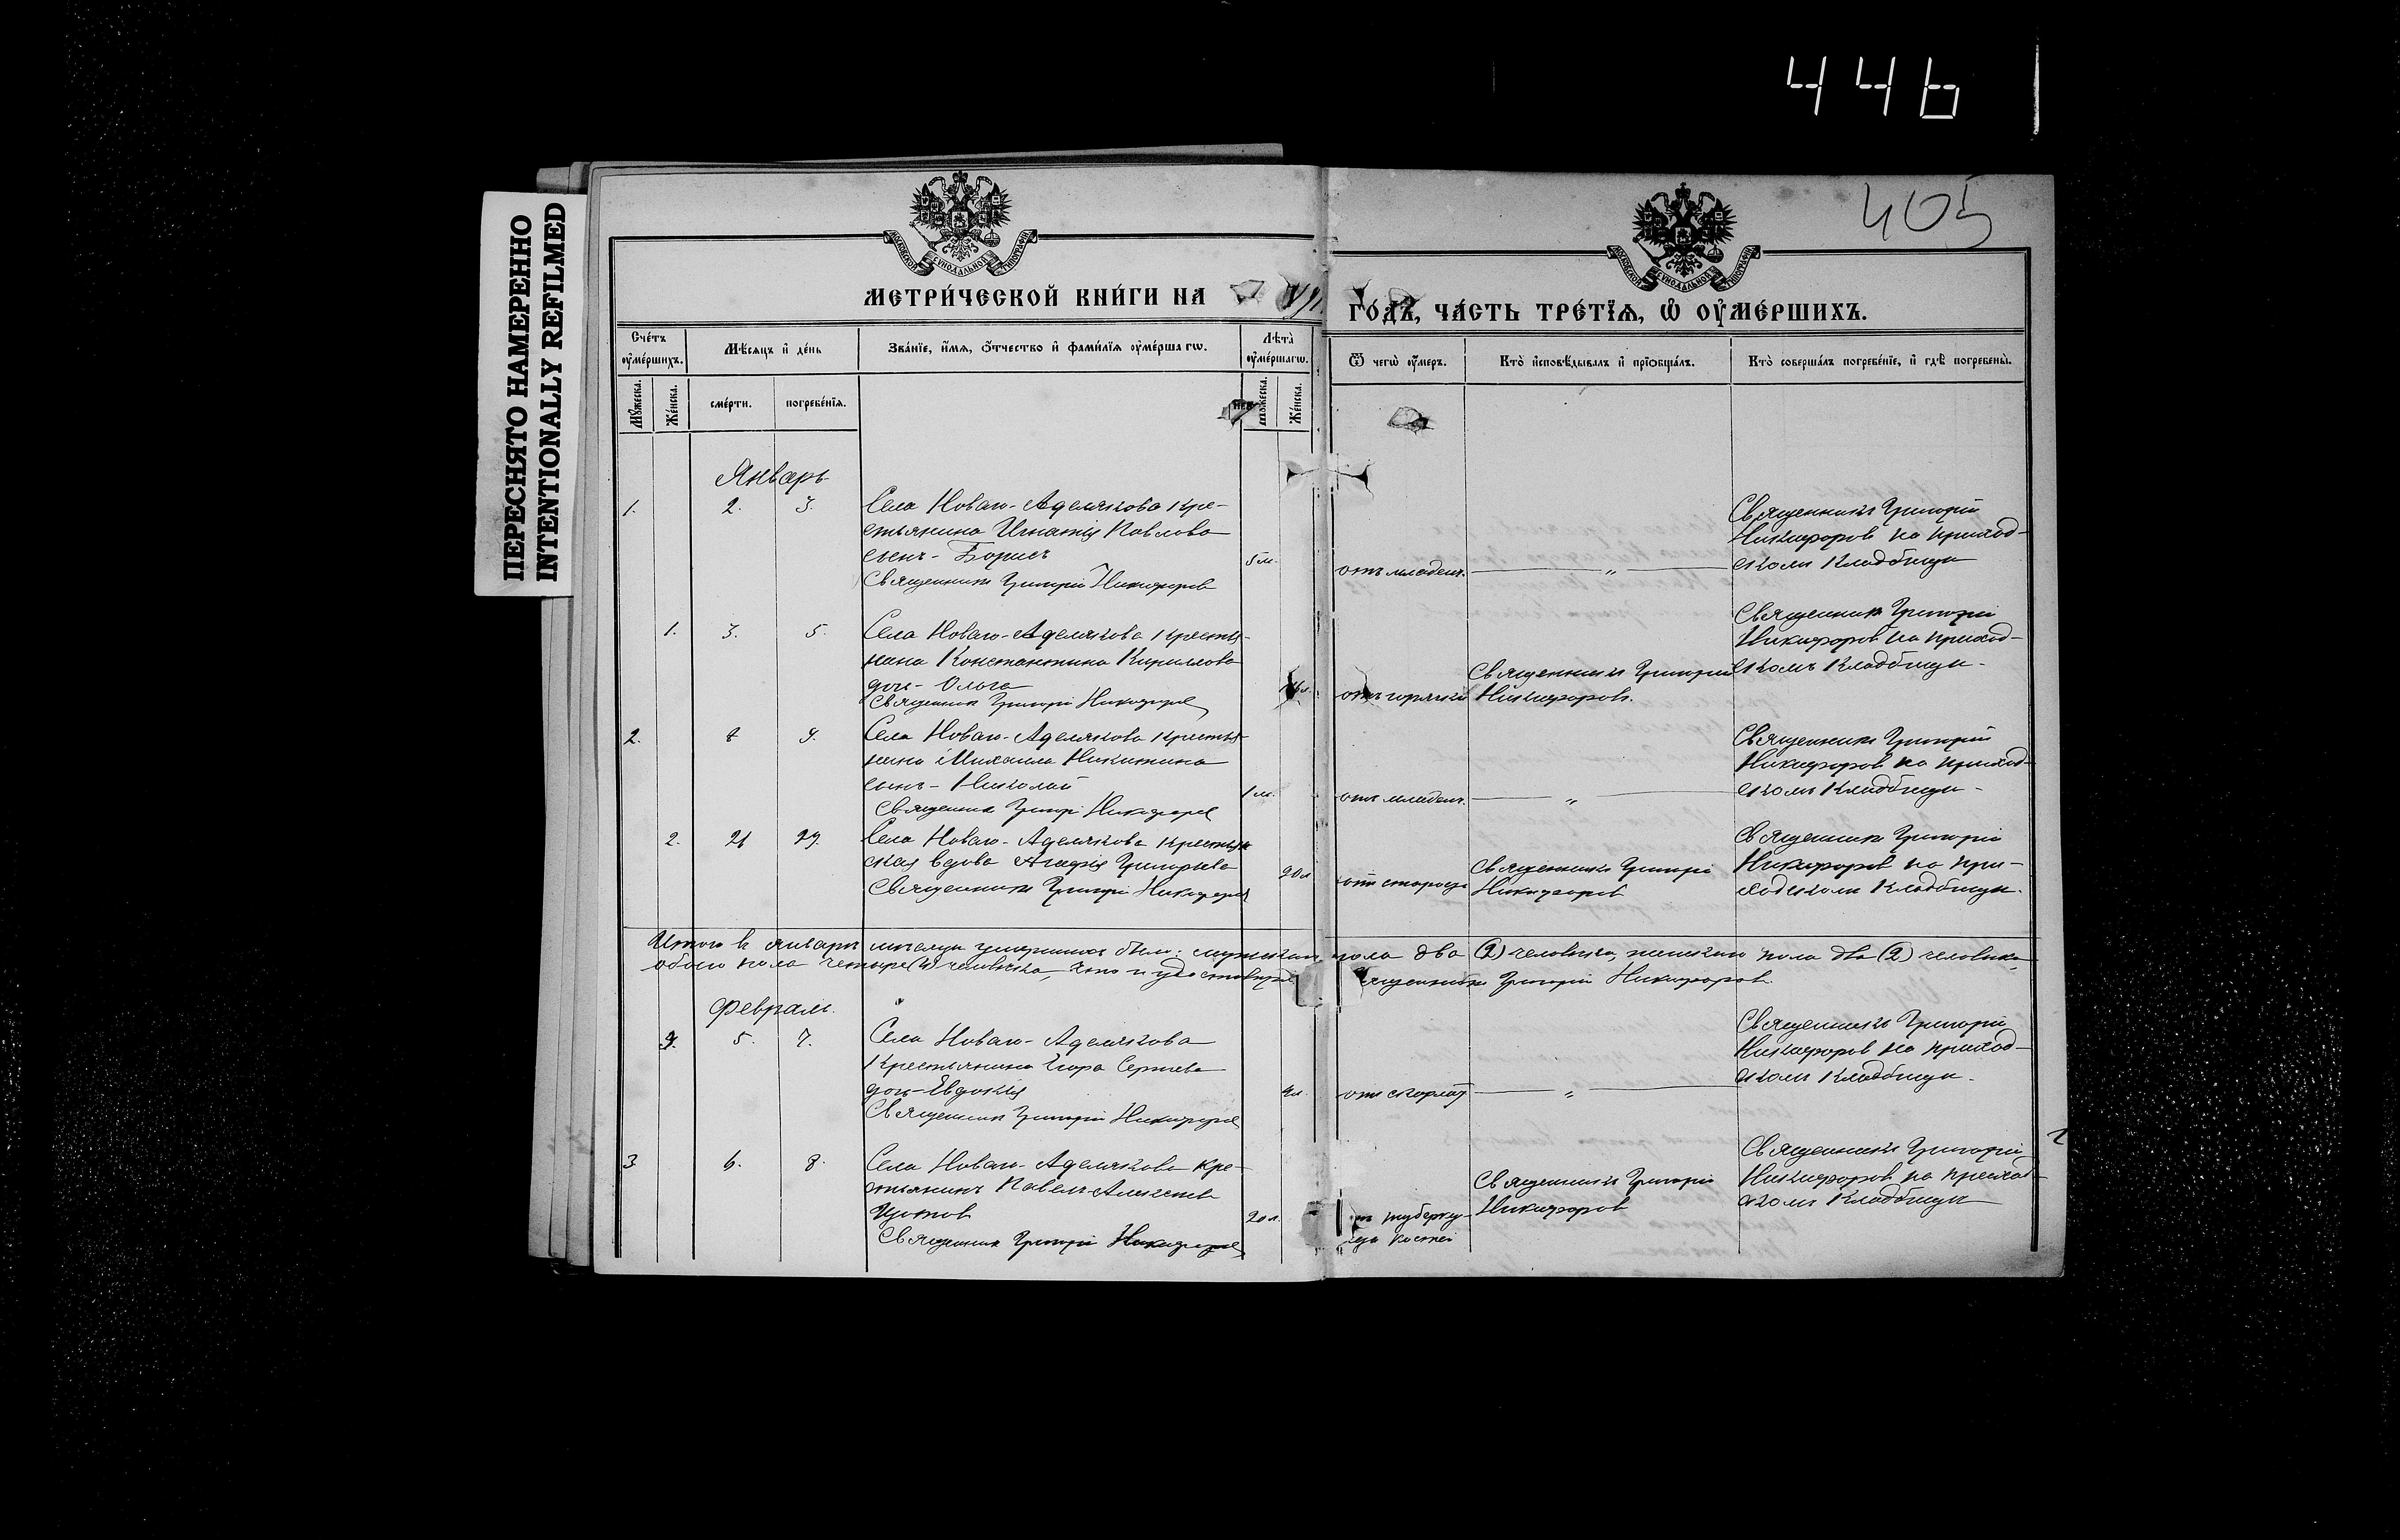 446
405
ПЕРЕСНЯТО НАМЕРЕННО
INTENTIONALLY REFILMED
МОСКОВСКОЙ СУНОДАЛЬНОЙ ТИПОГРАФІИ
МОСКОВСКОЙ СУНОДАЛЬНОЙ ТИПОГРАФІИ
МЕТРИ́ЧЕСКОЙ КНИ́ГИ НА
ГО́ДЪ, ЧА́СТЬ ТРЕ́ТЇѦ, Ѡ҆ ОУ҆МЕ́РШИХЪ.
Сче́тъ оу҆ме́ршихъ.
Мѣ́сяцъ и҆ де́нь
Зва́нїе, и҆́мя, ѻ҆́тчество и҆ фами́лїя оу҆ме́ршагѡ.
Лѣ́та оу҆ме́ршагѡ.
Ѿ чегѡ̀ оу҆́меръ.
Кто̀ и҆сповѣ́дывалъ и҆ прїѡбща́лъ.
Кто̀ соверша́лъ погребе́нїе, и҆ гдѣ̀ погребены̀.
Мꙋ́жеска.
Же́нска.
сме́рти.
погребе́нїя.
Мꙋ́жеска.
Же́нска.
Январь
1. 2. 3. Села Новаго-Аделякова кре-
стьянина Игнатія Павлова
сынъ - Борисъ
Священникъ Григорій Никифоровъ
5 м. отъ младен. — „ —
Священникъ Григорій
Никифоровъ на приход-
скомъ кладбищѣ
1. 3. 5. Села Новаго-Аделякова крестья-
нина Константина Кириллова
дочь - Ольга
Священникъ Григорій Никифоровъ
отъ горячки
Священникъ Григорій
Никифоровъ.
Священникъ Григорій
Никифоровъ на приход-
скомъ кладбищѣ.
2. 8 9. Села Новаго-Аделякова крестья-
нина Михаила Никитина
сынъ - Николай
Священникъ Григорій Никифоровъ
1 м. отъ младен. — „ —
Священникъ Григорій
Никифоровъ на приход-
скомъ кладбищѣ.
2. Села Новаго-Аделякова крестьян-
ская вдова Агафія Григорьева
Священникъ Григорій Никифоровъ
отъ старости
Священникъ Григорій
Никифоровъ
Священникъ Григорій
Никифоровъ на при-
ходскомъ кладбищѣ.
Итого въ январѣ мѣсяцѣ умершихъ было: мужскаго пола два (2) человѣка, женскаго пола два (2) человѣка,
обоего пола четыре (4) человѣка, что и удостовѣряю Священникъ Григорій Никифоровъ.
Февраль.
3. 5. 7. Села Новаго-Аделякова
крестьянина Егора Сергѣева
дочь - Евдокія
Священникъ Григорій Никифоровъ
— „ —
Священникъ Григорій
Никифоровъ на приход-
скомъ кладбищѣ.
3 6. 8. Села Новаго-Аделякова кре-
стьянинъ Павелъ Алексѣевъ
Священникъ Григорій Никифоровъ
20 л. отъ туберку-
костей
Священникъ Григорій
Никифоровъ
Священникъ Григорій
Никифоровъ на приход-
скомъ кладбищѣ